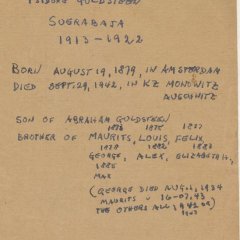 ISIDORE GOLDSTEEN
SOERABAJA
1913-1922
BORN AUGUST 19, 1879, IN AMSTERDAM
DIED SEPT. 29, 1942, IN KZ MONOWITZ
AUSCHWITZ
SON OF ABRAHAM GOLDSTEEN
1875 1877
BROTHER OF MAURITS, LOUIS, FELIX,
1878 1882 1883
GEORGE, ALEX, ELIZABETH,
1885
MAX
(GEORGE DIED AUG. 1, 1934
MAURITS 16-07-43
THE OTHERS ALL 1942 OR
1943